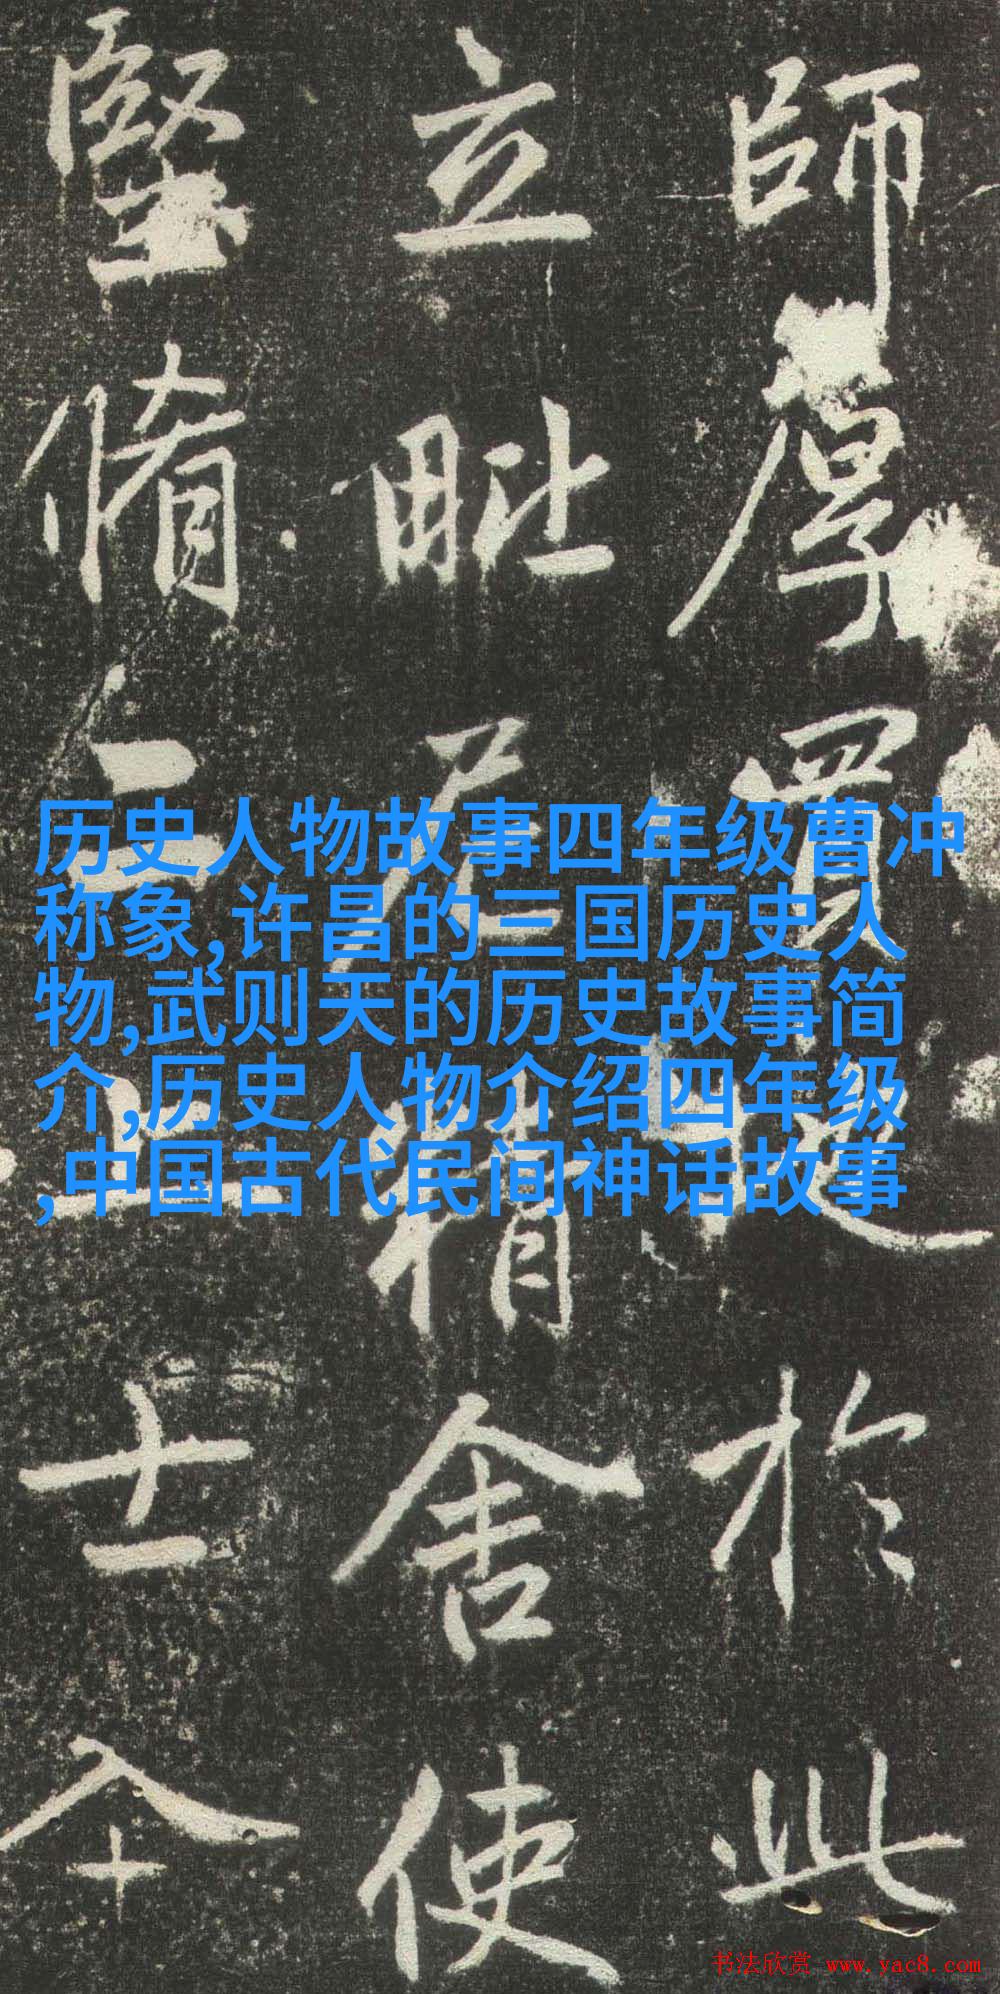 師厚買於此
立毗尼精舍使
堅脩二士
历史人物故事四年级曹冲
称象,许昌的三国历史人
物,武则天的历史故事简
介,历史人物介绍四年级
,中国古代民间神话故事
书法欣赏 www.yac8.com